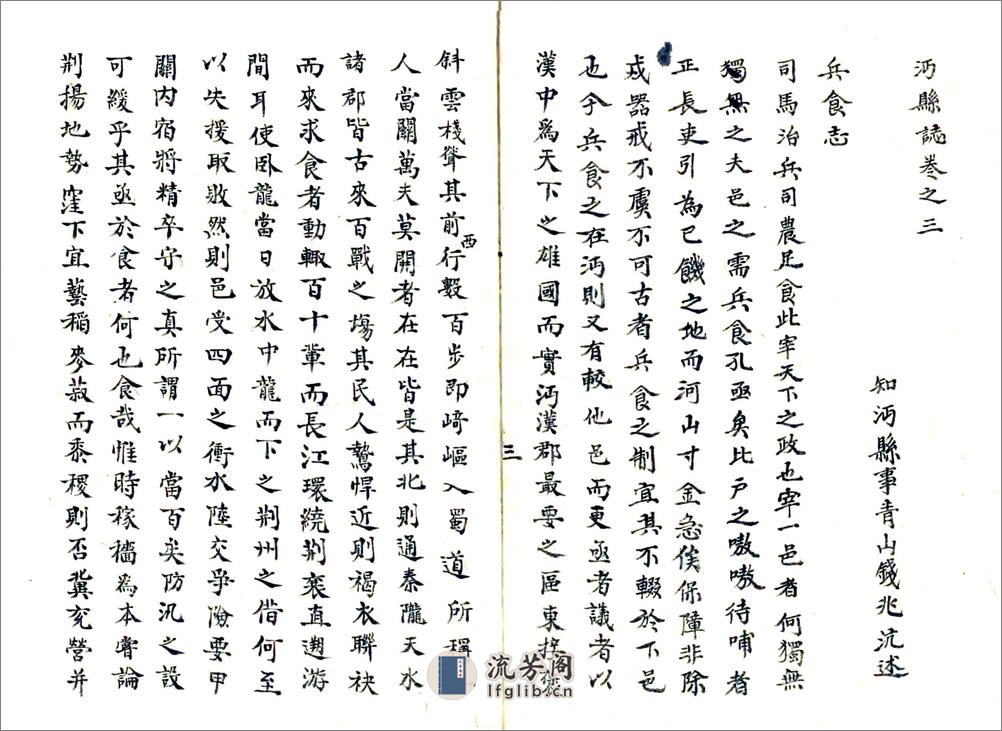 沔縣誌卷之三
知沔縣事青山錢兆沆述
兵食志
司馬治兵司農足食此宰天下之政也宰一邑者何獨無
獨無之夫邑之需兵食孔亟矣比戶之嗷嗷待哺者
正長吏引為己饑之地而河山寸金急俟保障非除
戎器戒不虞不可古者兵食之制宜其不輟於下邑
也今兵食之在沔則又有較他邑而更亟者議者以
漢中為天下之雄國而實沔漢郡最要之區東控褒
三
斜雲棧聳其前西行數百步即崎嶇入蜀道所稱一
人當關萬夫莫開者在在皆是其北則通秦隴天水
諸郡皆古來百戰之塲其民人鷙悍近則褐衣聯袂
而來求食者動輒百十輩而長江環繞荆襄直遡游
間耳使卧龍當日放水中龍而下之荆州之借何至
以失援取敗然則邑受四面之衝水陸交爭險要甲
關内宿將精卒守之真所謂一以當百矣防汛之設
可緩乎其亟於食者何也食哉惟時稼穡為本嘗論
荆揚地勢窪下宜藝稻麥菽而黍稷則否冀兖營并
流芳阁
lfglib.cn